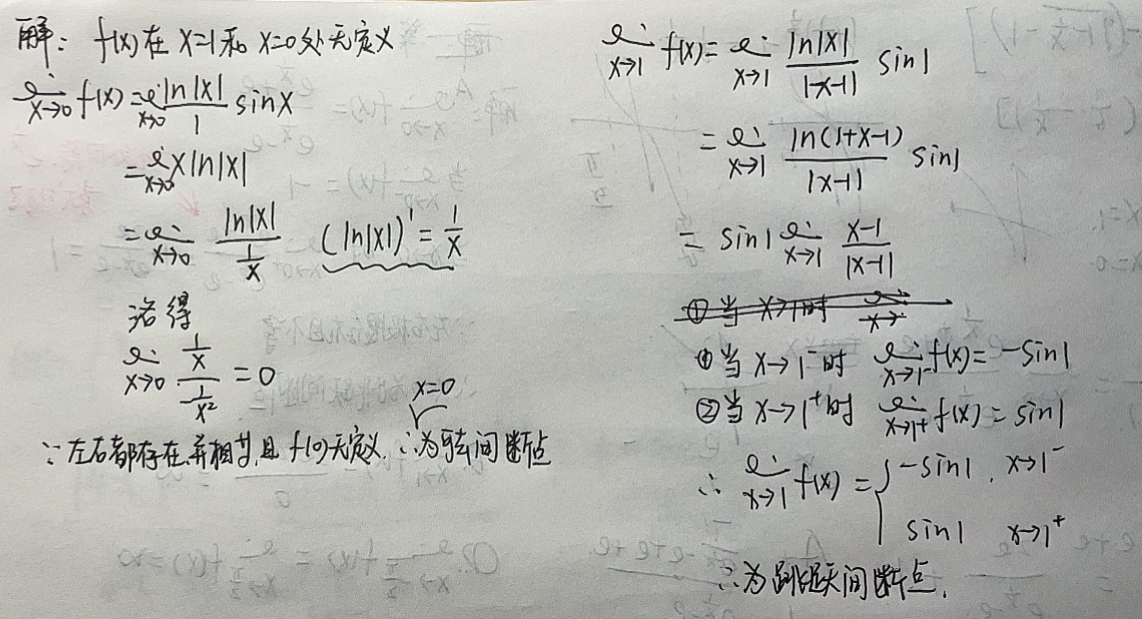 解: f(x)在 x=1和 x=0处无定义
lim x→0 f(x)=lim x→0 ln|x|/1 sinx
=lim x→0 xln|x|
=lim x→0 ln|x|/(1/x) (ln|x|)'=1/x
洛得
lim x→0 (1/x)/(1/x²) =0
x=0
∵左右都存在,并相等,且 f(0)无定义. ∴为可去间断点
lim x→1 f(x)=lim x→1 ln|x|/|-x-1| sin1
=lim x→1 ln(1+x-1)/|x-1| sin1
= sin1 lim x→1 (x-1)/|x-1|
①当 x→1时 lim x→
①当 x→1⁻时 lim x→1⁻ f(x)=-sin1
②当 x→1⁺时 lim x→1⁺ f(x)=sin1
∴ lim x→1 f(x)={-sin1, x→1⁻
sin1 x→1⁺
∴为跳跃间断点.